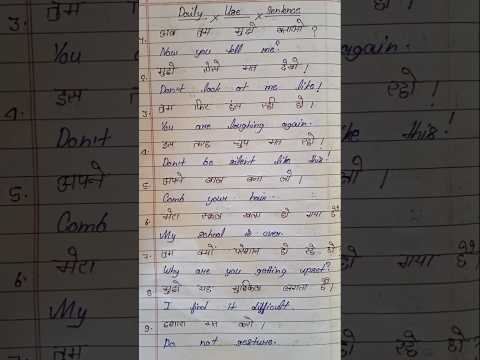 Daily Use Sentence
1. अब तुम मुझे बताओ ?
Now you tell me?
2. मुझे ऐसे मत देखो !
Don't look at me like!
3. तुम फिर हंस रही हो !
You are laughing again.
4. इस तरह चुप मत रहो !
Don't be silent like this!
5. अपने बाल बना लो !
Comb your hair.
6. मेरा स्कूल खत्म हो गया है
My school is over.
7. तुम क्यों परेशान हो रहे हो ?
Why are you getting upset?
8. मुझे यह मुश्किल लगता है
I find it difficult.
9. इशारा मत करो !
Do not gesture.